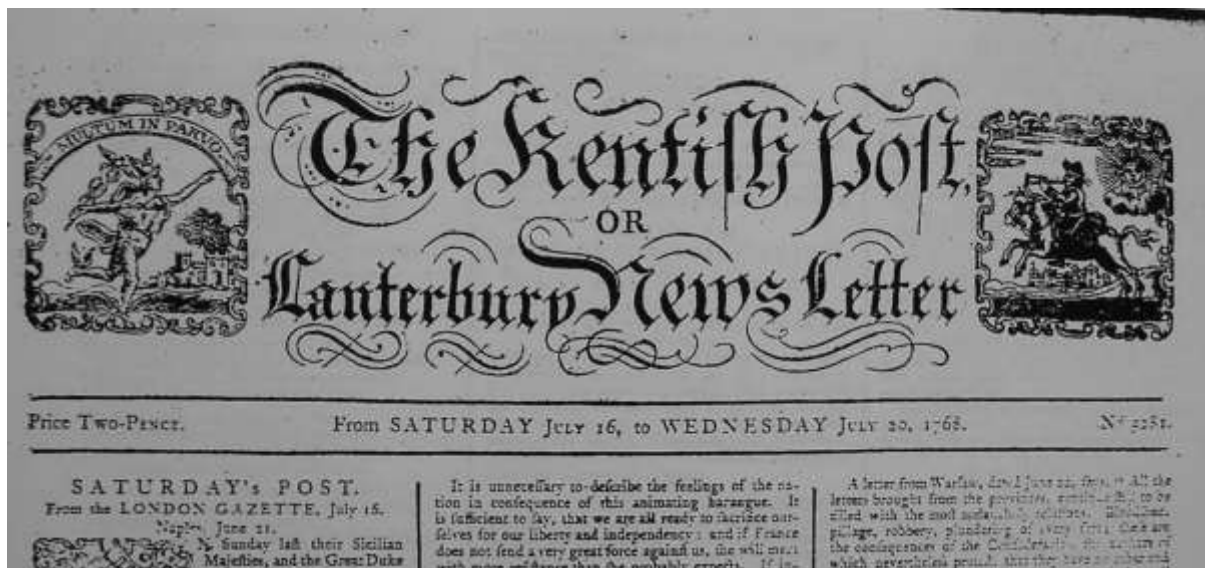 MULTUM IN PARVO
The Kentiſh Poſt,
OR
Canterbury News Letter
Price Two-Pence.
From SATURDAY July 16, to WEDNESDAY July 20, 1768.
SATURDAY's POST.
From the LONDON GAZETTE, July 16.
Naples, June 21.
Sunday laſt their Sicilian
Majeſties, and the Great Duke
It is unneceſſary to deſcribe the feelings of the na-
tion in conſequence of this animating harangue. It
is ſufficient to ſay, that we are all ready to ſacrifice our-
ſelves for our liberty and independency: and if France
does not ſend a very great force againſt us, ſhe will meet
with more reſiſtance than ſhe probably expects.
A letter from Warſaw, June All the
letters brought from the provinces, to be
filled with the moſt
pillage, robbery, plundering of every there are
the conſequences of the
which nevertheleſs that they have no other end